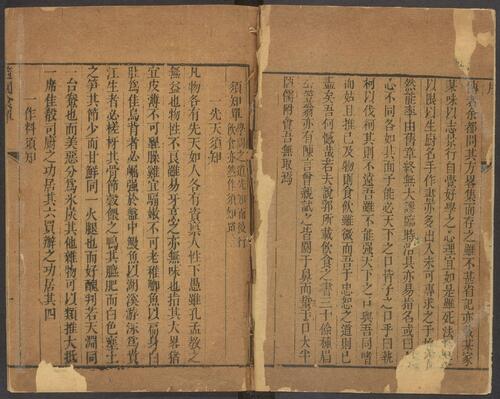 傳者余都問其方畧集而存之雖不甚省記亦載某家
某味以志景行自覺好學之心理宜如是雖死法
以限生廚名手作書亦多出入未可專求之于
然能率由舊章終無大謬臨時治具亦易指名或曰
心不同各如其面子能必天下之口皆子之口乎曰執
柯以伐柯其則不遠吾雖不能強天下之口與吾同嗜
而姑且推己及物則食飲雖微而吾于忠恕之道則已
盡矣吾何憾哉若夫說郛所載飲食之書三十餘種眉
公笠翁亦有陳言曾親試之皆閼于鼻而蜇于口大半
陋儒附會吾無取焉
須知單
學問之道先知而後行
飲食亦然作須知單
一先天須知
凡物各有先天如人各有資稟人性下愚雖孔孟教之
無益也物性不良雖易牙烹之亦無味也指其大畧猪
宜皮薄不可腥臊雞宜騸嫩不可老稚鯽魚以扁身白
肚爲佳烏背者必崛強於盤中鰻魚以湖溪游泳爲貴
江生者必槎枒其骨節穀餵之鴨其膘肥而白色壅土
之笋其節少而甘鮮同一火腿也而好醜判若天淵同
一台鯗也而美惡分爲氷炭其他雜物可以類推大抵
一席佳殽司厨之功居其六買辦之功居其四
一作料須知